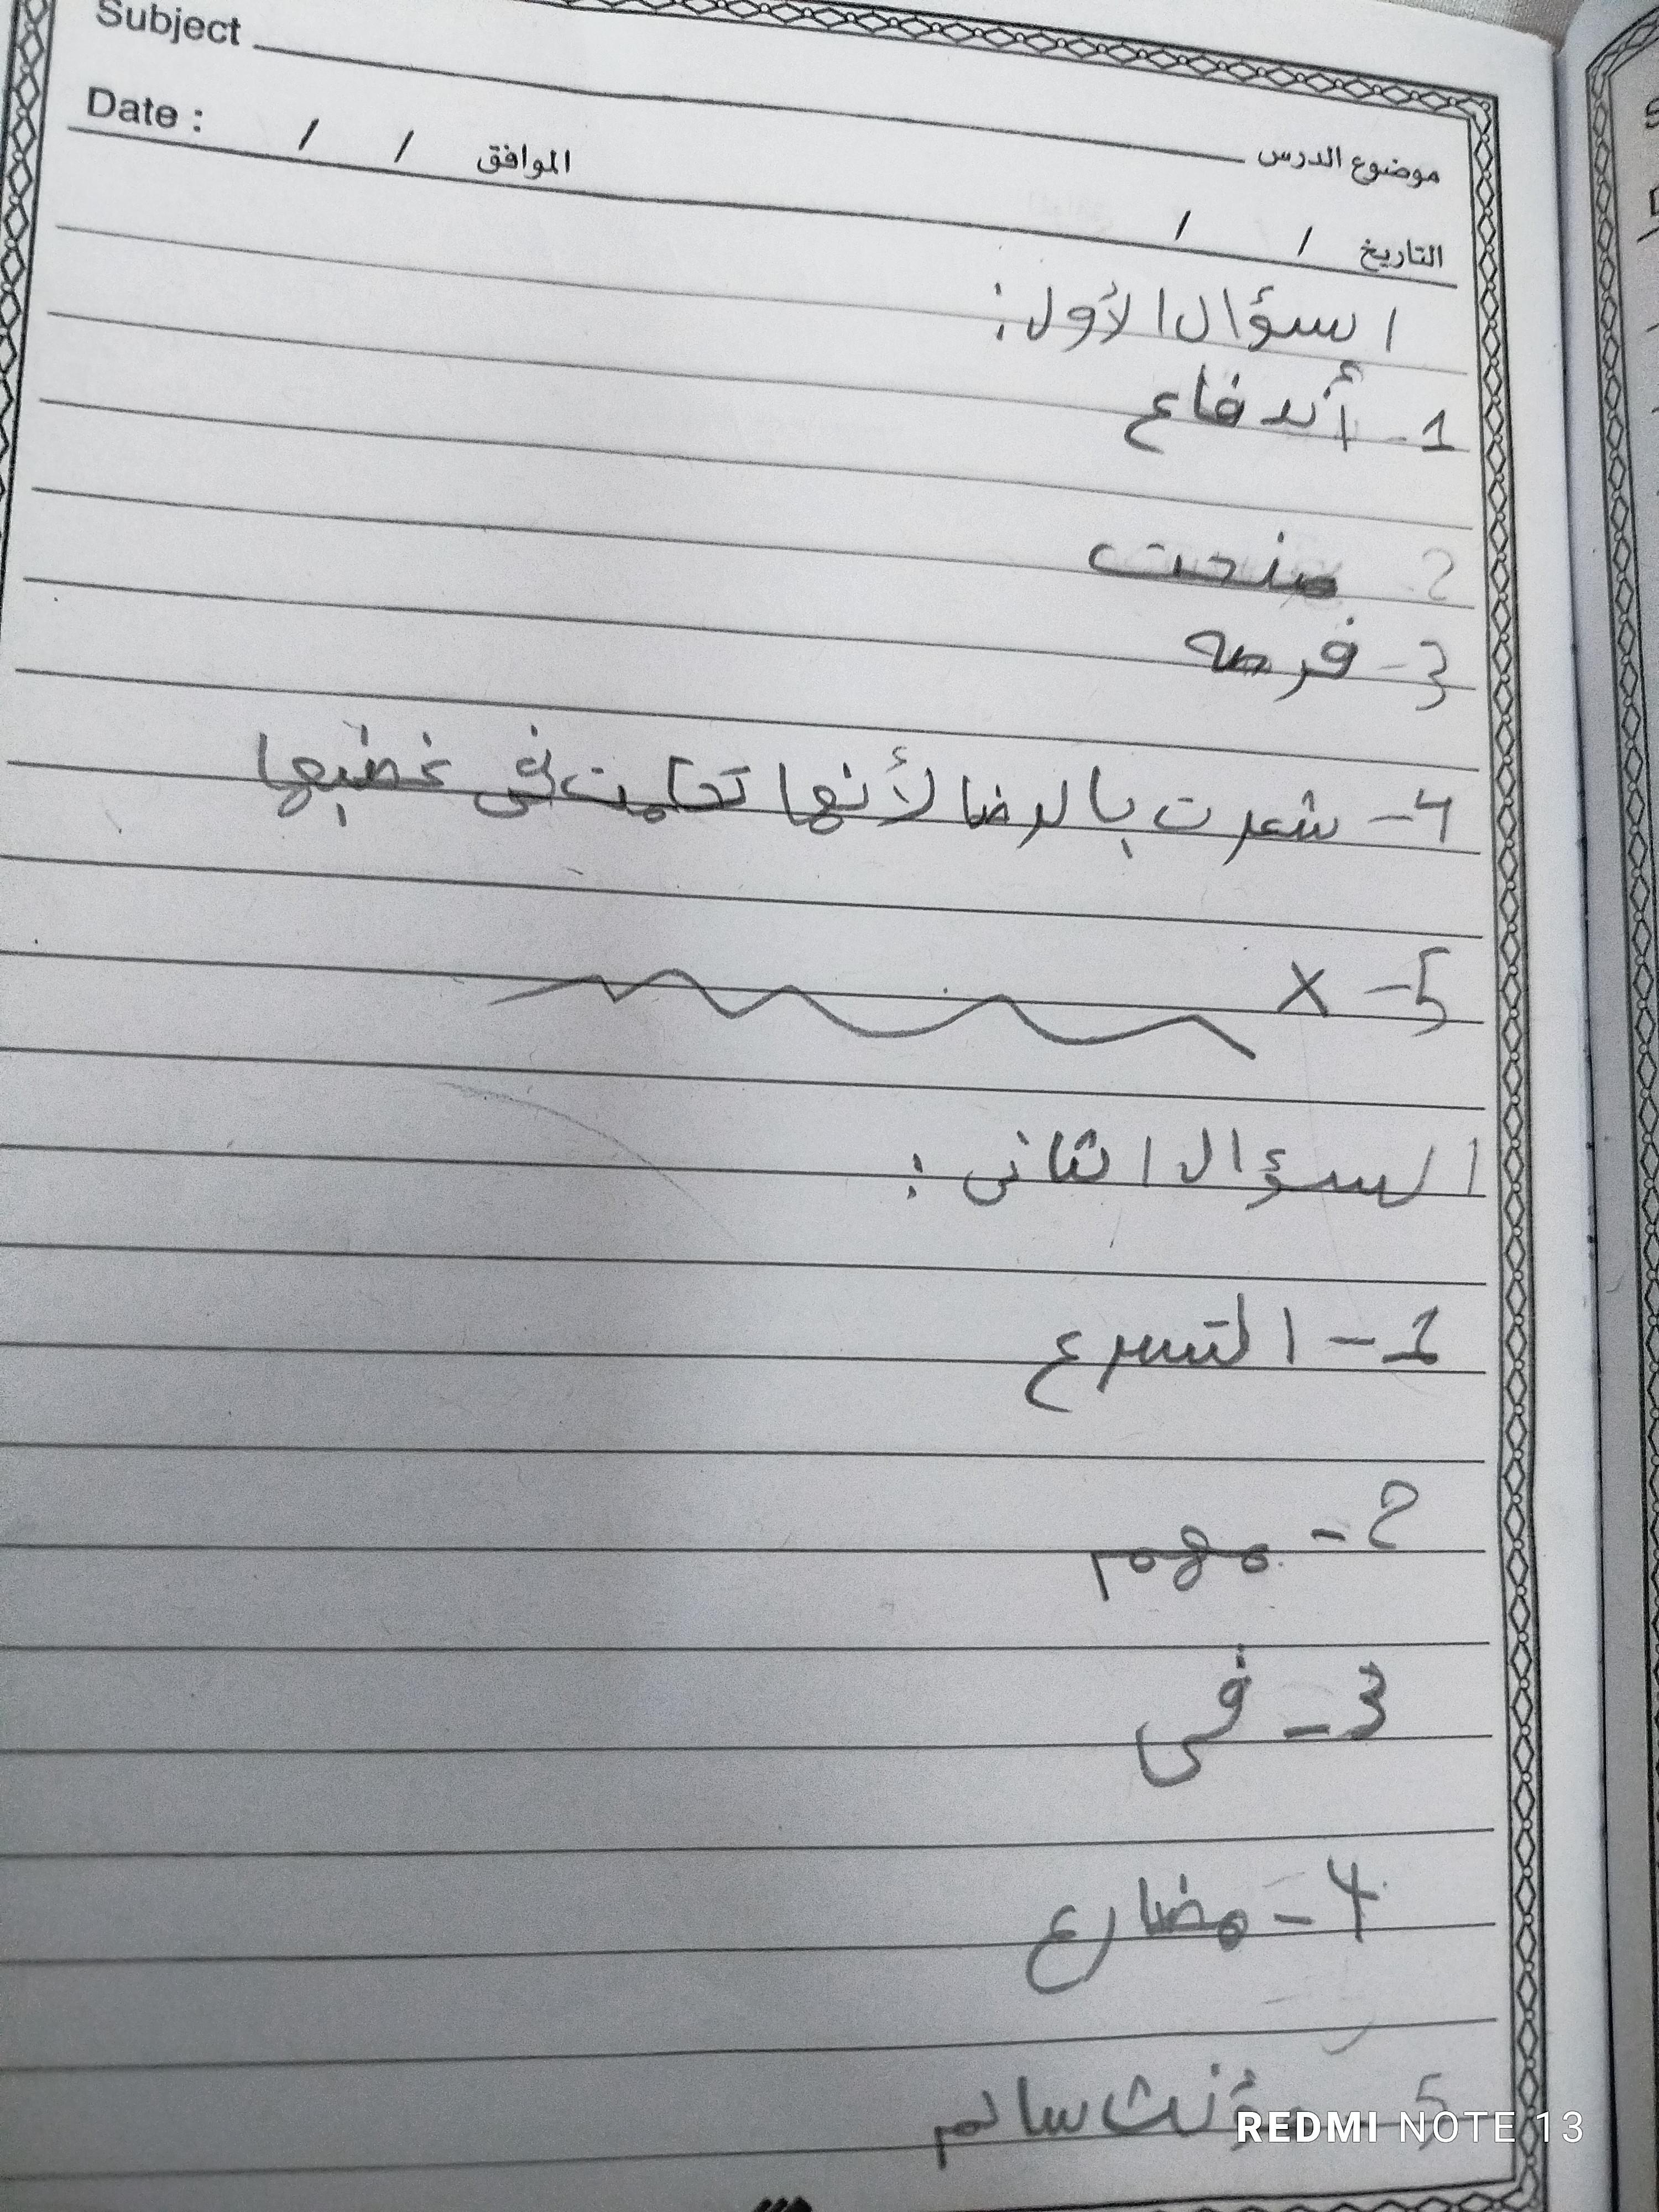 Subject
موضوع الدرس
Date : / / الموافق
التاريخ / /
اسؤال الأول :
1- أندفاع
2- منحت
3- فرصه
4- شعرت بالرضا لأنها تحكمت في غضبها
5- X
السؤال الثانى :
1- التسرع
2- مهم
3- فى
4- مضارع
5- مؤنث سالم
REDMI NOTE 13